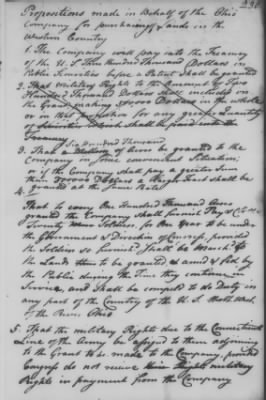 Propositions made in Behalf of the Ohio
Company for purchasing Lands in the
Western Country
1. The Company will pay into the Treasury
of the U.S. Three Hundred Thousand Dollars in
Public Securities before a Patent shall be granted
2. That Military Rights to the amount of
Hundred Thousand Dollars shall be included in
the Grant making Dollars in the whole
or in that proportion for any greater Quantity
Treasury
Six Hundred Thousand
3. Than a of Acres be granted to the
Company in some convenient Situation;
or if the Company shall pay a greater Sum
than Dollars a larger Tract shall be
granted at the same Rate
4.
That to every One Hundred Thousand Acres
granted the Company shall furnish Pay &
Twenty Soldiers, for One Year to be under
the Government & Direction of Congress, furnish
the Soldiers so furnish'd shall be march'd to
the Lands to be granted & arm'd & fed by
the Public during the Time they continue in
Service, and shall be compell'd to do Duty in
any part of the Country of the U.S. North West
of the River Ohio
5. That the military Rights due to the Connecticut
Line of the Army be assign'd to them adjoining
to the Grant to be made to the Company, provided
Congress do not receive military
Rights in payment from the Company